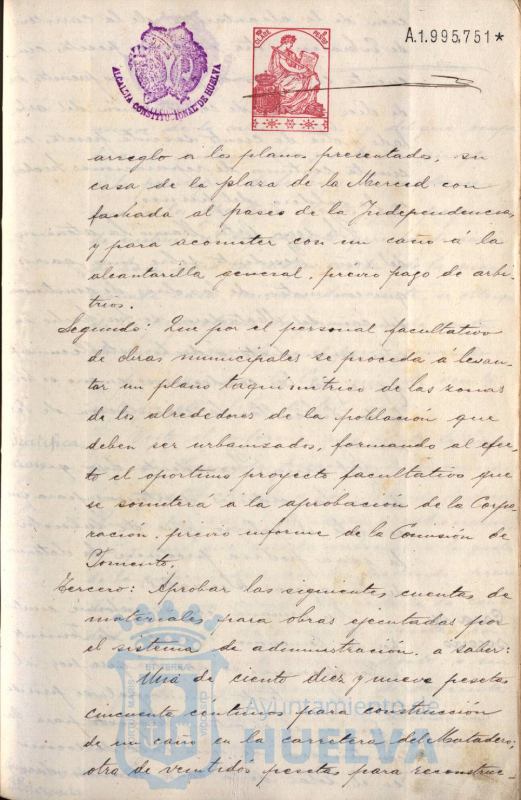 A.1.995,751*
ALCALDIA CONSTITUCIONAL DE HUELVA
arreglo a los planos presentados, su
casa de la plaza de la Merced con
fachada al paseo de la Independencia
y para acometer con un caño á la
alcantarilla general, previo pago de arbi-
trios.
Segundo: Que por el personal facultativo
de obras municipales se proceda á levan-
tar un plano taquimétrico de las zonas
de los alrededores de la población que
deben ser urbanizados, formando al efec-
to el oportuno proyecto facultativo que
se someterá á la aprobación de la Corpo-
ración, previo informe de la Comisión de
Fomento.
Tercero: Aprobar las siguientes cuentas de
materiales para obras ejecutadas por
el sistema de administración, a saber:
Una de ciento diez y nueve pesetas
cincuenta centimos para construcción
de un caño en la carretera del Matadero;
otra de veintidós pesetas para reconstruc-
Ayuntamiento de
HUELVA